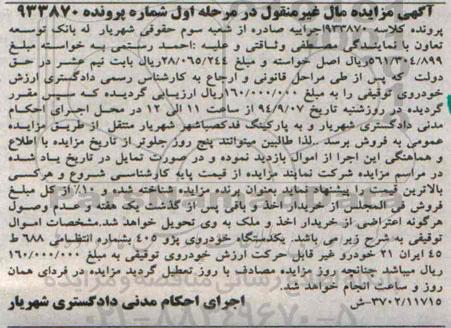 آگهی مزایده مال غیرمنقول در مرحله اول شماره پرونده ۹۳۳۸۷۰
پرونده کلاسه ۹۳۳۸۷۰اجراییه صادره از شعبه سوم حقوقی شهریار له بانک توسعه
تعاون با نمایندگی مصطفی وثاقتی و علیه :احمد رستمی به خواسته مبلغ
۵۶۱/۳۰۴/۸۹۹ریال اصل خواسته و مبلغ ۲۸/۰۶۵/۲۴۴ریال بابت نیم عشر در حق
دولت که پس از طی مراحل قانونی و ارجاع به کارشناس رسمی دادگستری ارزش
خودروی توقیفی را به مبلغ ۱۶۰/۰۰۰/۰۰۰ریال ارزیابی گردیده که سپس مقرر
گردیده در روزشنبه تاریخ ۹۴/۹/۰۷ از ساعت ۱۱ الی ۱۲ در محل اجرای احکام
مدنی دادگستری شهریار و به پارکینگ فدکصباشهر شهریار منتقل از طریق مزایده
عمومی به فروش برسد ..لذا طالبین میتوانند پنج روز جلوتر از تاریخ مزایده با اطلاع
و هماهنگی این اجرا از اموال بازدید نموده و در صورت تمایل در تاریخ یاد شده
در مراسم مزایده شرکت نمایند مزایده از قیمت پایه کارشناسی شروع و هرکسی
بالاترین قیمت را پیشنهاد نماید بعنوان برنده مزایده شناخته شده و ۱۰٪ از کل مبلغ
فروش فی المجلس از خریدار اخذ و باقی پس از گذشت یک هفته و عدم وصول
هرگونه اعتراضی از خریدار اخذ و ملک به وی تحویل خواهد شد.مشخصات اموال
توقیفی به شرح زیر می باشد. یکدستگاه خودروی پژو ۴۰۵ بشماره انتظامی ۶۸۸ ط
۴۵ ایران ۲۱ خودرو غیر قابل حرکت ارزش خودروی توقیفی به مبلغ ۱۶۰/۰۰۰/۰۰۰
ریال میباشد چنانچه روز مزایده مصادف با روز تعطیل گردید مزایده در فردای همان
روز و ساعت انجام خواهد شد.
۳۷۰۲/۱۱۷۱۵-ش اجرای احکام مدنی دادگستری شهریار